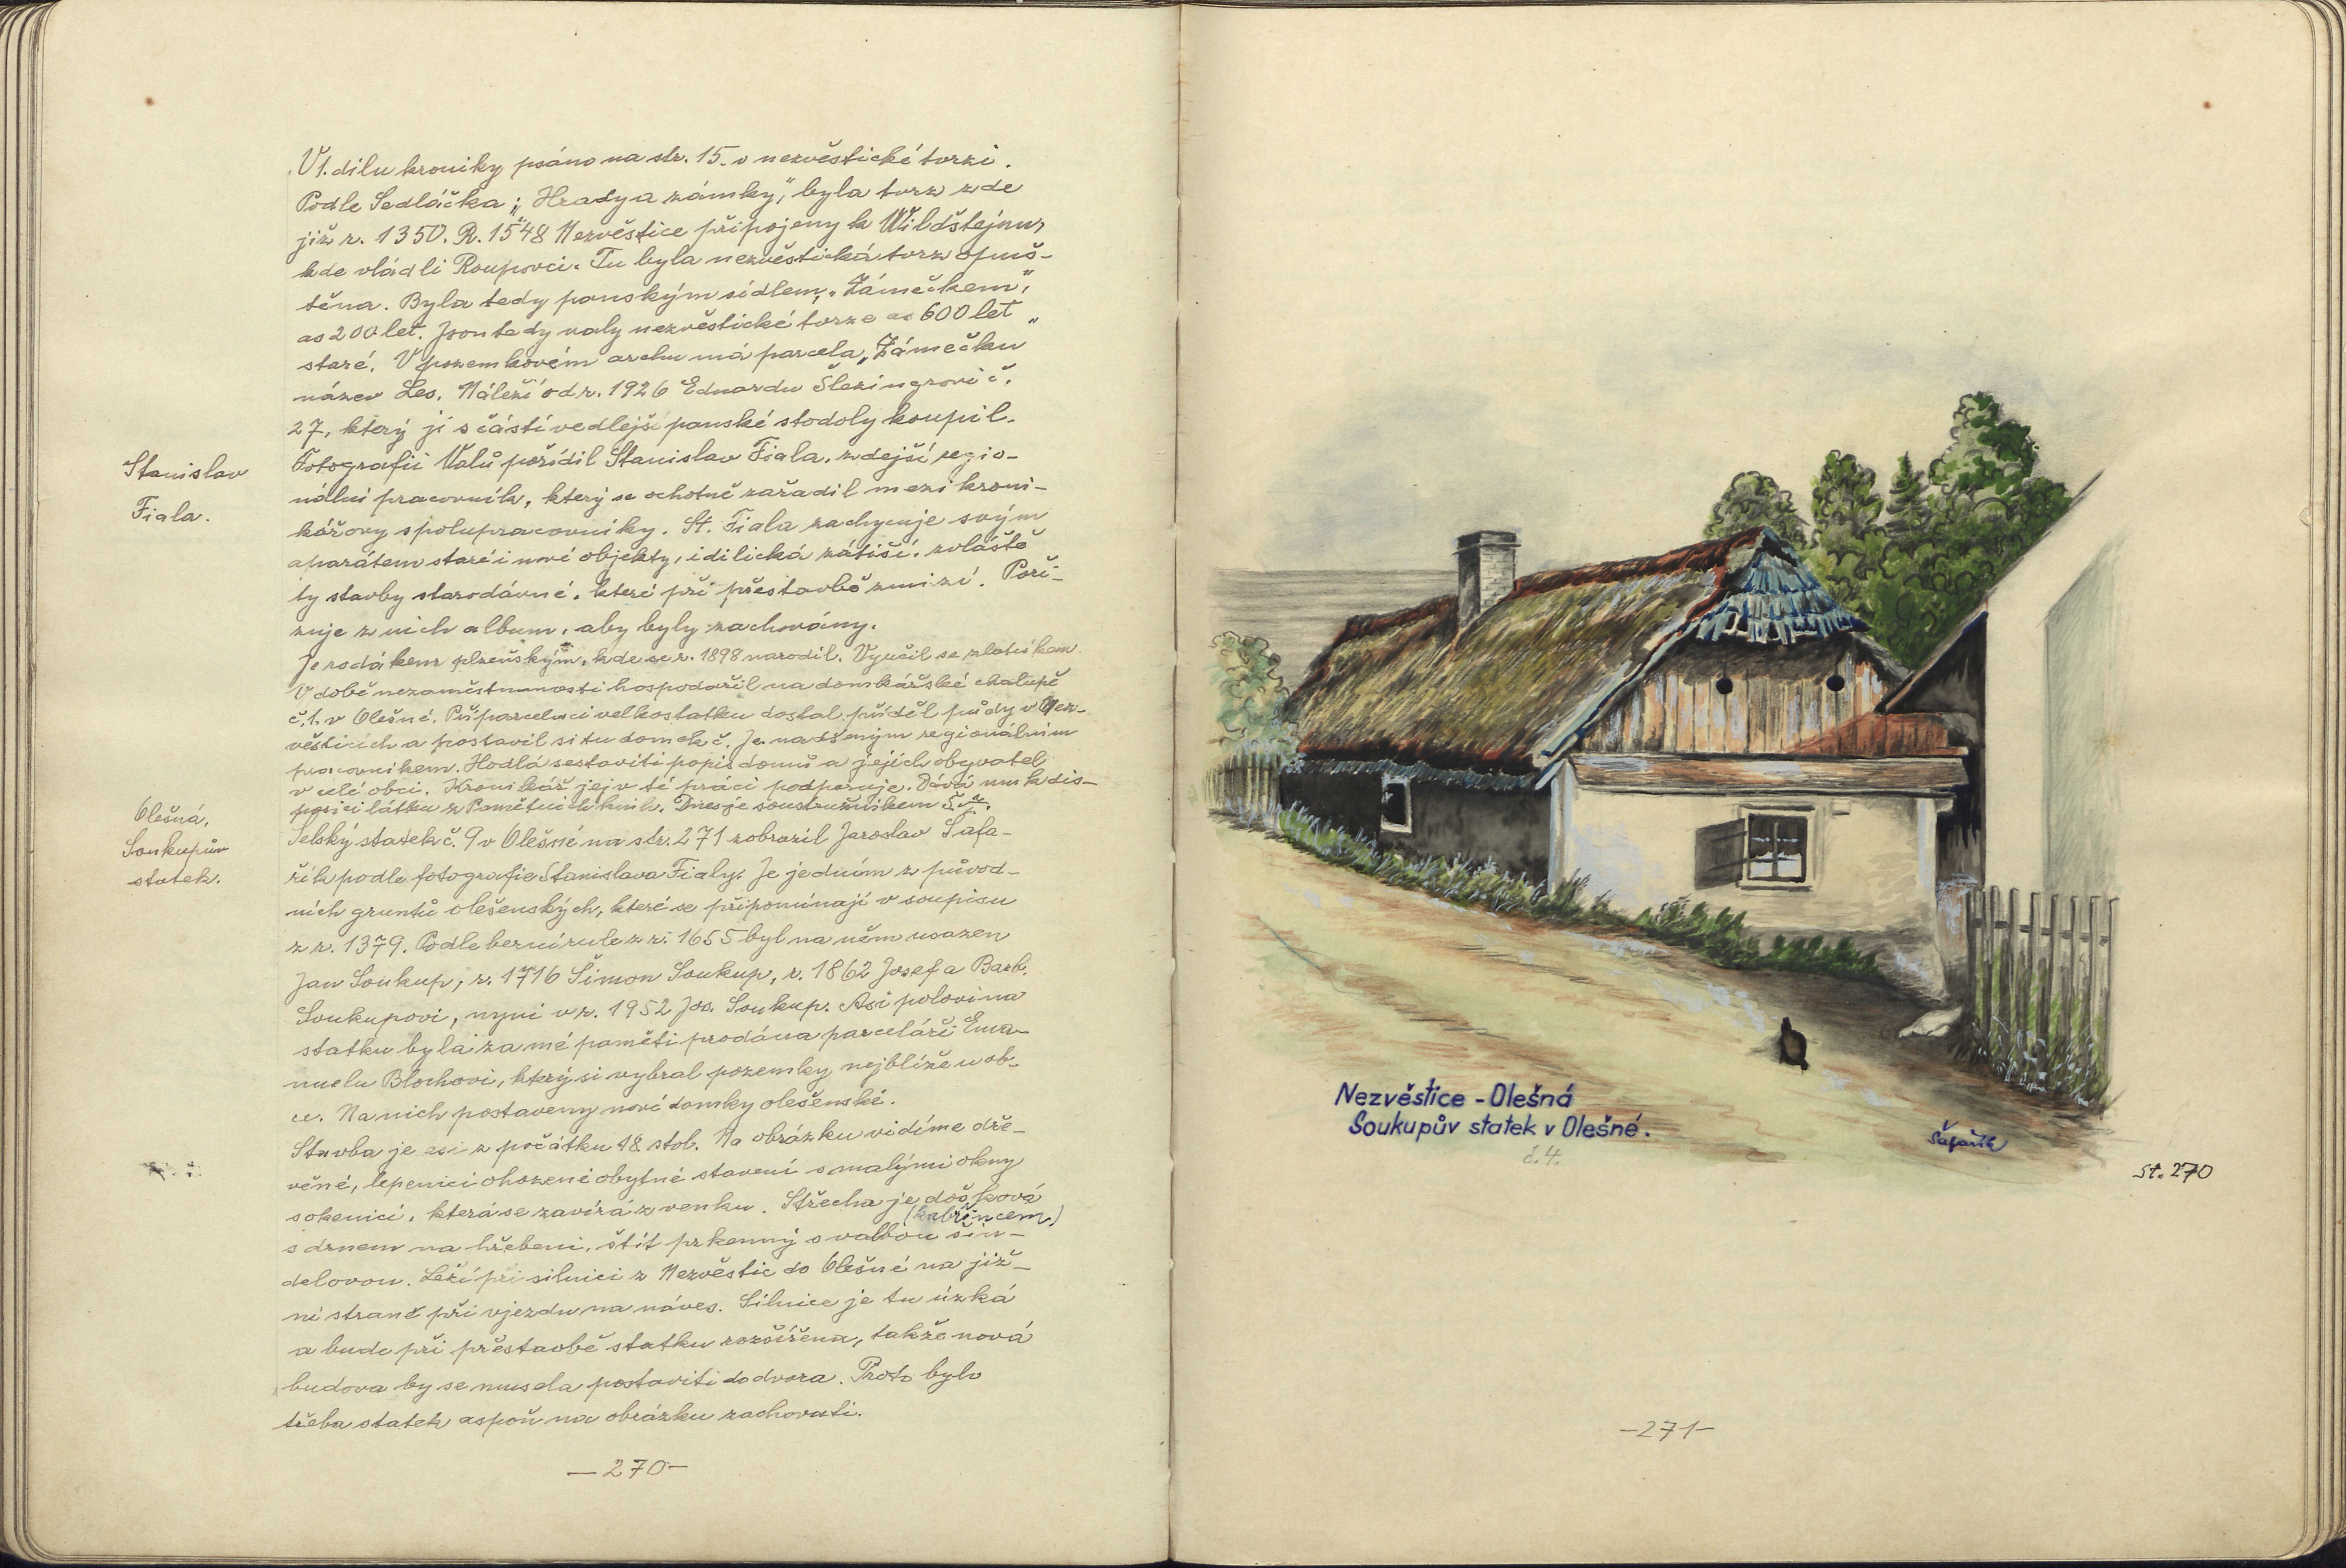 V 1. dílu kroniky psáno na str. 15. o nezvěstické tvrzi.
Podle Sedláčka: „Hrady a zámky," byla tvrz zde
již r. 1350. R. 1548 Nezvěstice připojeny k Wildštejnu,
kde vládli Roupovci. Tu byla nezvěstická tvrz opuš-
těna. Byla tedy panským sídlem, „Zámečkem",
as 200 let. Jsou tedy valy nezvěstické tvrze as 600 let
staré. V pozemkovém archu má parcela „Zámečku"
název Les. Náleží od r. 1926 Eduardu Šlezingrovi č.
27, který ji s částí vedlejší panské stodoly koupil.
Stanislav
Fiala.
Fotografii Valů pořídil Stanislav Fiala, zdejší regio-
nální pracovník, který se ochotně zařadil mezi kroni-
kářovy spolupracovníky. St. Fiala zachycuje svým
aparátem staré i nové objekty, idilická zátiší, zvláště
ty stavby starodávné, které při přestavbě zmizí. Poři-
zuje z nich album, aby byly zachovány.
Je rodákem plzeňským, kde se r. 1898 narodil. Vyučil se zlatníkem.
V době nezaměstnanosti hospodařil na domkářské chalupě
č. 1. v Olešné. Při parcelaci velkostatku dostal příděl půdy v Nez-
věsticích a postavil si tu domek č. Je nadšeným regionálním
pracovníkem. Hodlá sestaviti popis domů a jejich obyvatel
v celé obci. Kronikář jej v té práci podporuje. Dává mu k dis-
posici látku z Pamětních knih. Dnes je soustružníkem
Olešná,
Soukupův
statek.
Selský statek č. 9 v Olešné na str. 271 zobrazil Jaroslav Šafa-
řík podle fotografie Stanislava Fialy. Je jedním z původ-
ních gruntů olešenských, které se připomínají v soupisu
z r. 1379. Podle berní rule z r. 1655 byl na něm usazen
Jan Soukup, r. 1716 Šimon Soukup, r. 1862 Josef a Barb.
Soukupovi, nyní v r. 1952 Jos. Soukup. Asi polovina
statku byla za mé paměti prodána parceláři Ema-
nuelu Blochovi, který si vybral pozemky nejblíže u ob-
ce. Na nich postaveny nové domky olešenské.
Stavba je asi z počátku 18. stol. Na obrázku vidíme dře-
věné, lepenicí ohozené obytné stavení s malými okny
s okenicí, která se zavírá z venku. Střecha je došková
(kabřincem)
s drnem na hřebeni, štít prkenný s valbou šin-
delovou. Leží při silnici z Nezvěstic do Olešné na již-
ní straně při vjezdu na náves. Silnice je tu úzká
a bude při přestavbě statku rozšířena, takže nová
budova by se musela postaviti do dvora. Proto bylo
třeba statek aspoň na obrázku zachovati.
—270—
Nezvěstice - Olešná
Soukupův statek v Olešné.
č. 4.
Šafařík
St. 270
—271—